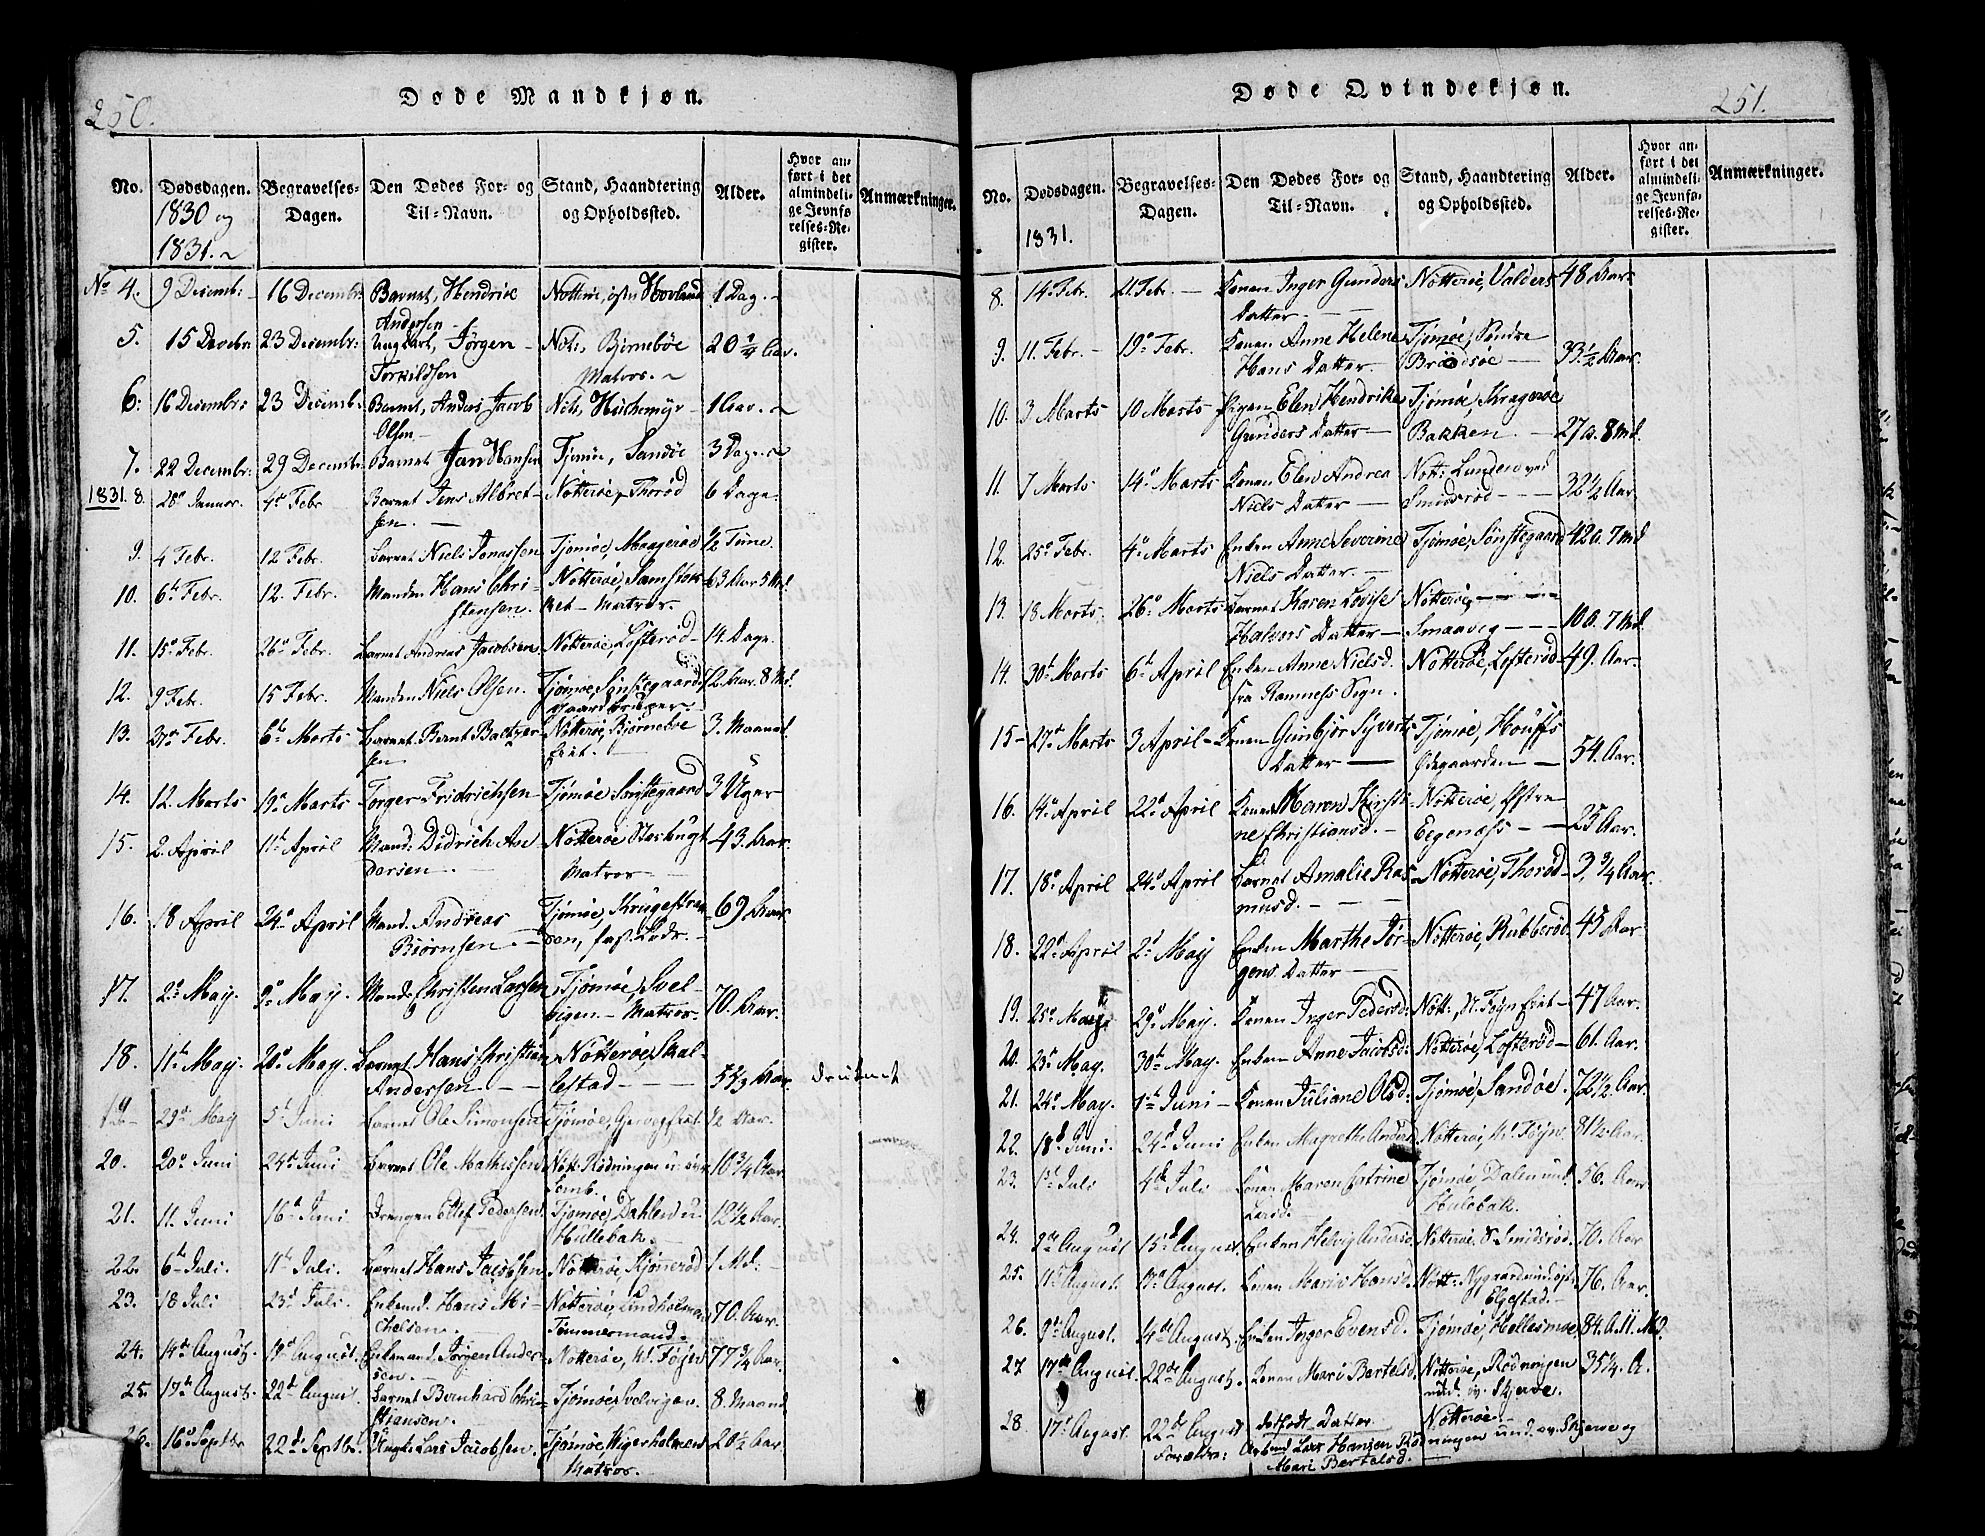 250.
Døde Mandkjøn.
No.
Dødsdagen.
1830 og
1831.
Begravelses-
Dagen.
Den Dødes For- og
Til-Navn.
Stand, Haandtering
og Opholdssted.
Alder.
Hvor an-
ført i det
almindeli-
ge Jevnfø-
relses-Re-
gister.
Anmærkninger.
No 4. 9 Decembr: 16 Decembr: Barnet, Hendrik Andersen Østen Hovland 1 Dag.
5. 15 Decbr. 23 Decembr: Ungkarl, Jørgen Torkildsen Nots, Biørnebøe Matros. 20 1/4 Aar.
6. 16 Decembr: 23 Decemb. Barnet, Anders Jacob Olsen Nots, 1 Aar.
7. 22 Decembr: 29 Decembr. Barnet Jan Hansen Tjømøe, Sandøe 3 Dage
1831. 8. 28de Januar. 4de Febr. Barnet Jens Albretsen. Nötteröe, Thoröd 6 Dage
9. 4 Febr. 12 Febr. Barnet Niels Jonassen Tjømøe, Maageröe 1/2 Time.
10. 6te Febr. 12. Febr. Manden Hans Christensen. Nötteröe, Matros. 63 Aar 5 Md.
11. 15de Febr. 26de Febr. Barnet Andreas Jacobsen Nötteröe, Lofteröd 14. Dage.
12. 9 Febr. 15 Febr. Manden Niels Olsen. Tjømøe, Sønstegaard, gaardbruger
13. Febr. 6te Marts Barnet Bernt Baltzersen Nötteröe, Biørnebøe Eiet. 3. Maaned
14. 12. Marts 19de Marts Torger Fridrichsen Tjømøe Sønstegaard 3 Uger
15. 2. April 11te April Mand: Didrich Andersen. Nötteröe Matros 43. Aar.
16. 18 April 24de April Mand. Andreas Biörnsen. Tjømøe, 69 Aar
17. 2de May. 9de May. Mand Christen Larsen Tjømøe, Solvigen. Matros. 70. Aar.
18. 11te May. 20de May. Barnet Hans Christian Andersen Nötteröe, Skallestad 5 2/3 Aar. druknet
19 29de May 5te Juni Barnet Ole Simonsen Tjømøe, 1/2 Aar.
20. 20de Juni 24de Juni Barnet Ole Mathissen Nött: Rödningen u. Semb. 10 3/4 Aar.
21. 11. Juni 16de Juni Drengen Ellef Pedersen. Tjømøe, Dahlen u. Hullebak. 12 1/2 Aar.
22. 6te Juli. 11te Juli. Barnet Hans Jacobsen Nötteröe, 1 Md:
23. 18 Juli 23de Juli. Enkemd. Hans Michelsen. Nötteröe, Lindholmen Tømmermand. 70. Aar.
24. 14de August. 19de August. Enkemand. Jörgen Andersen. Nötteröe, N. Föyn 77 3/4 Aar.
25. 17de August. 22de August. Barnet Bernhard Christiansen. Tjømøe, Solvigen. 8. Maaned
26. 16de Septbr 22de Septbr. Ungk: Lars Jacobsen. Tjømøe Matros. 20 1/2 Aar.
251.
Døde Qvindekjøn.
No.
Dødsdagen.
1831.
Begravelses-
Dagen.
Den Dødes For- og
Til-Navn.
Stand, Haandtering
og Opholdssted.
Alder.
Hvor an-
ført i det
almindeli-
ge Jevnfø-
relses-Re-
gister.
Anmærkninger.
8. 14 Febr. 21. Febr. Konen Inger Gunders Datter. Nötteröe, Valders 48 Aar
9. 11. Febr. 19de Febr. Konen Anne Helene Hans Datter. Tjømøe, Søndre Brødsøe 33 1/2 Aar.
10. 3 Marts 10 Marts Pigen Elen Hendrike Gunders Datter Tjømøe, Krageröe Bakken. 27 a. 8 Md.
11. 7 Marts 14de Marts Konen Elen Andrea Niels Datter Nött: Lunden ved Smidsröd 32 1/2 Aar.
12. 25de Febr. 4de Marts Enken Anne Severine Niels Datter. Tjømøe, Sønstegaard 42 a. 7 Md
13. 18 Marts. 26de Marts Barnet Karen Lovise Halvors Datter Nötteröe Smaavig 10 a. 7 Md.
14. 30te Marts 6te April Enken Anne Nielsd. fra Ramness Sogn. Nötteröe, Lofteröd 49. Aar.
15 27de Marts 3 April Konen Gunbjör Syverts Datter Tjømøe, Houffs Ødegaarden 54. Aar.
16. 14de April 22de April Konen Maren Kirstine Christiansd. Nötteröe, Østre Eegenæss 25 Aar.
17. 18de April 24de April Barnet Amalie Rasmusd. Nötteröe, Thoröd 3 3/4 Aar.
18. 22de April 2de May Enken Marthe Jörgens Datter Nötteröe, Rubberöd 45 Aar.
19. 25de May. 29de May. Konen Inger Pedersd: Nött:, N. Föyn Eiet 47 Aar.
20. 23de May. 30te May. Enken Anne Jacobsd: Nötteröe, Lofteröd 61. Aar.
21. 24de May. 1te Juni Konen Juliane Olsd: Tjømøe, Sandöe. 72 1/2 Aar.
22. 18de Juni. 24de Juni Enken Magrethe Anders Nötteröe, N. Föyn. 81 1/2 Aar.
23. 1te Juli 4de Juli Konen Maren Catrine Larsd. Tjømøe, Dalen und. Hulebak. 56. Aar
24. 9de August 15de August. Enken Helvig Andersd. Nötteröe S. Smidsröd. 70. Aar
25. 11te August. 17de August. Konen Marie Hansd: Nött: Nygaard und. Elgestad. 76. Aar.
26. 9de August. 14de August. Enken Inger Evensd. Tjømøe, Hellesmoe 84. A. 11. Md.
27 17de August. 22de August. Konen Mari Bertelsd. Nötteröe, Rödningen und. øv. Skjerve. 35 1/4. A.
28 17de August. 22de August dødfødt Datter Nötteröe
Forældre: Arbmd Lars Hansen Rödningen und. øv. Skjerve og
Mari Bertelsd.